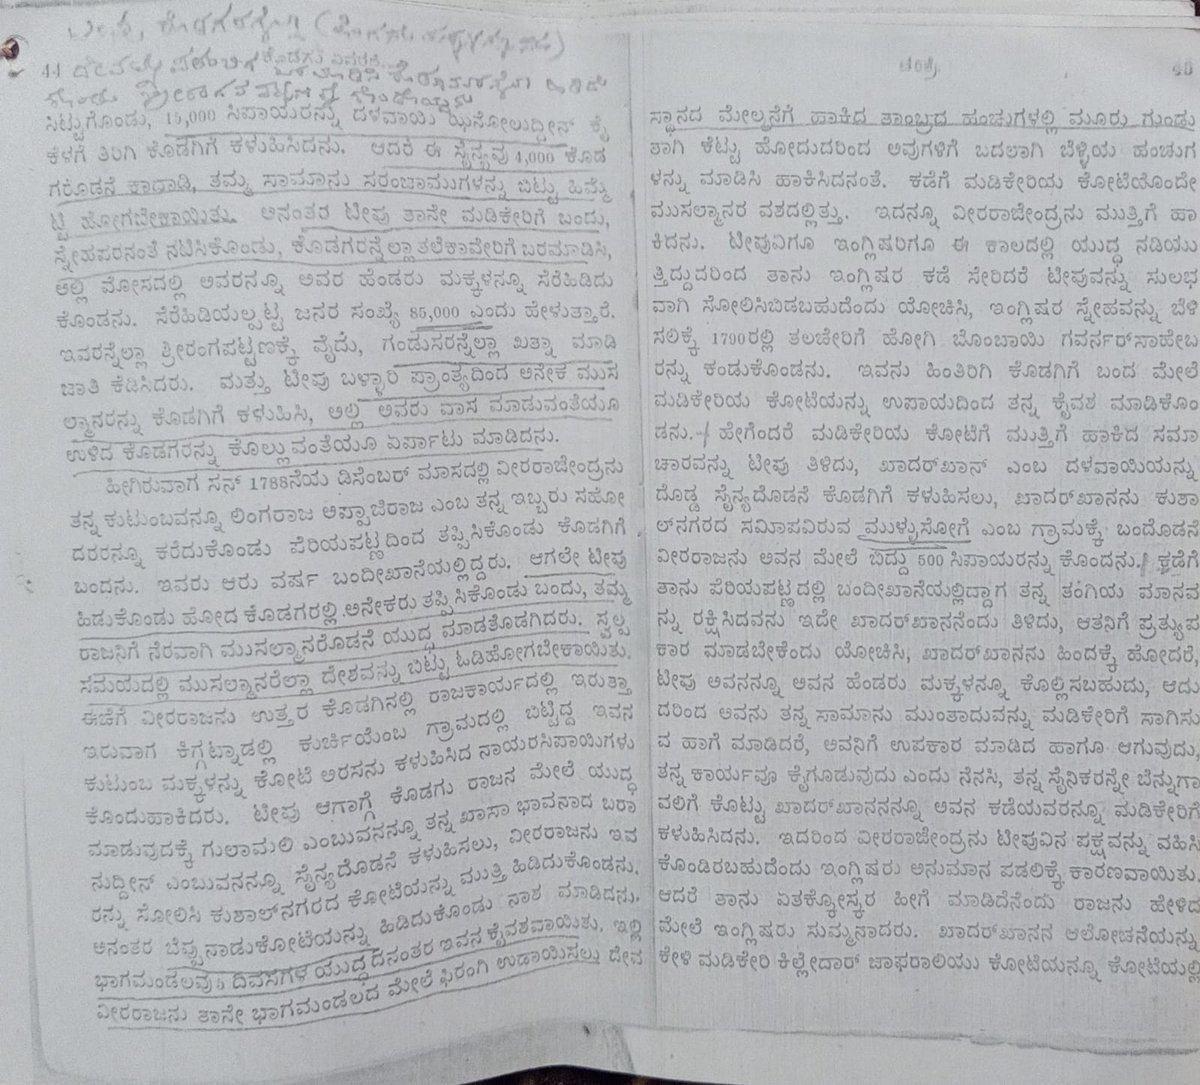 44
ಸಿಟ್ಟುಗೊಂಡು, 15,000 ಸಿಪಾಯರನ್ನು ದಳವಾಯಿ ಝನೋಲುದ್ದೀನ್ ಕೈ
ಕೆಳಗೆ ತಿರಿಗಿ ಕೊಡಗಿಗೆ ಕಳುಹಿಸಿದನು. ಆದರೆ ಈ ಸೈನ್ಯವು 4,000 ಕೊಡ
ಗರೊಡನೆ ಕಾದಾಡಿ, ತಮ್ಮ ಸಾಮಾನು ಸರಂಜಾಮುಗಳನ್ನು ಬಿಟ್ಟು ಹಿಮ್ಮೆ
ಟ್ಟಿ ಹೋಗಬೇಕಾಯಿತು. ಅನಂತರ ಟೀಪು ತಾನೇ ಮಡಿಕೇರಿಗೆ ಬಂದು,
ಸ್ನೇಹಪರನಂತೆ ನಟಿಸಿಕೊಂಡು, ಕೊಡಗರನ್ನೆಲ್ಲಾ ತಲೆಕಾವೇರಿಗೆ ಬರಮಾಡಿಸಿ,
ಅಲ್ಲಿ ಮೋಸದಲ್ಲಿ ಅವರನ್ನೂ ಅವರ ಹೆಂಡರು ಮಕ್ಕಳನ್ನೂ ಸೆರೆಹಿಡಿದು
ಕೊಂಡನು. ಸೆರೆಹಿಡಿಯಲ್ಪಟ್ಟ ಜನರ ಸಂಖ್ಯೆ 85,000 ಎಂದು ಹೇಳುತ್ತಾರೆ.
ಇವರನ್ನೆಲ್ಲಾ ಶ್ರೀರಂಗಪಟ್ಟಣಕ್ಕೆ ವೈದು, ಗಂಡುಸರನ್ನೆಲ್ಲಾ ಖತ್ನಾ ಮಾಡಿ
ಜಾತಿ ಕೆಡಿಸಿದರು. ಮತ್ತು ಟೀಪು ಬಳ್ಳಾರಿ ಪ್ರಾಂತ್ಯದಿಂದ ಅನೇಕ ಮುಸ
ಲ್ಮಾನರನ್ನು ಕೊಡಗಿಗೆ ಕಳುಹಿಸಿ, ಅಲ್ಲಿ ಅವರು ವಾಸ ಮಾಡುವಂತೆಯೂ
ಉಳಿದ ಕೊಡಗರನ್ನು ಕೊಲ್ಲುವಂತೆಯೂ ಏರ್ಪಾಟು ಮಾಡಿದನು.
ಹೀಗಿರುವಾಗ ಸನ್ 1788ನೆಯ ಡಿಸೆಂಬರ್ ಮಾಸದಲ್ಲಿ ವೀರರಾಜೇಂದ್ರನು
ತನ್ನ ಕುಟುಂಬವನ್ನೂ ಲಿಂಗರಾಜ ಅಪ್ಪಾಜಿರಾಜ ಎಂಬ ತನ್ನ ಇಬ್ಬರು ಸಹೋ
ದರರನ್ನೂ ಕರೆದುಕೊಂಡು ಪೆರಿಯಪಟ್ಟಣದಿಂದ ತಪ್ಪಿಸಿಕೊಂಡು ಕೊಡಗಿಗೆ
ಬಂದನು. ಇವರು ಆರು ವರ್ಷ ಬಂದೀಖಾನೆಯಲ್ಲಿದ್ದರು. ಆಗಲೇ ಟೀಪು
ಹಿಡುಕೊಂಡು ಹೋದ ಕೊಡಗರಲ್ಲಿ ಅನೇಕರು ತಪ್ಪಿಸಿಕೊಂಡು ಬಂದು, ತಮ್ಮ
ರಾಜನಿಗೆ ನೆರವಾಗಿ ಮುಸಲ್ಮಾನರೊಡನೆ ಯುದ್ಧ ಮಾಡತೊಡಗಿದರು. ಸ್ವಲ್ಪ
ಸಮಯದಲ್ಲಿ ಮುಸಲ್ಮಾನರೆಲ್ಲಾ ದೇಶವನ್ನು ಬಿಟ್ಟು ಓಡಿಹೋಗಬೇಕಾಯಿತು.
ಈಚೆಗೆ ವೀರರಾಜನು ಉತ್ತರ ಕೊಡಗಿನಲ್ಲಿ ರಾಜಕಾರ್ಯದಲ್ಲಿ ಇರುತ್ತಾ
ಇರುವಾಗ ಕಿಗ್ಗಟ್ನಾಡಲ್ಲಿ ಕುರ್ಚಿಯೆಂಬ ಗ್ರಾಮದಲ್ಲಿ ಬಿಟ್ಟಿದ್ದ ಇವನ
ಕುಟುಂಬ ಮಕ್ಕಳನ್ನು ಕೋಟೆ ಅರಸನು ಕಳುಹಿಸಿದ ನಾಯರಸಿಪಾಯಿಗಳು
ಕೊಂದುಹಾಕಿದರು. ಟೀಪು ಆಗಾಗ್ಗೆ ಕೊಡಗು ರಾಜನ ಮೇಲೆ ಯುದ್ಧ
ಮಾಡುವುದಕ್ಕೆ ಗುಲಾಮಲಿ ಎಂಬುವನನ್ನೂ ತನ್ನ ಖಾಸಾ ಭಾವನಾದ ಬರಾ
ನುದ್ದೀನ್ ಎಂಬುವನನ್ನೂ ಸೈನ್ಯದೊಡನೆ ಕಳುಹಿಸಲು, ವೀರರಾಜನು ಇವ
ರನ್ನು ಸೋಲಿಸಿ ಕುಶಾಲ್‌ನಗರದ ಕೋಟೆಯನ್ನು ಮುತ್ತಿ ಹಿಡಿದುಕೊಂಡನು.
ಅನಂತರ ಬೆಪ್ಪುನಾಡುಕೋಟೆಯನ್ನು ಹಿಡಿದುಕೊಂಡು ನಾಶ ಮಾಡಿದನು.
ಭಾಗಮಂಡಲವು 5 ದಿವಸಗಳ ಯುದ್ಧದನಂತರ ಇವನ ಕೈವಶವಾಯಿತು. ಇಲ್ಲಿ
ವೀರರಾಜನು ತಾನೇ ಭಾಗಮಂಡಲದ ಮೇಲೆ ಫಿರಂಗಿ ಉಡಾಯಿಸಲು ದೇವ
ಚರಿತ್ರೆ
ಸ್ಥಾನದ ಮೇಲ್ಮನೆಗೆ ಹಾಕಿದ ತಾಂಬ್ರದ ಹಂಚುಗಳಲ್ಲಿ ಮೂರು ಗುಂಡು
ತಾಗಿ ಕೆಟ್ಟು ಹೋದುದರಿಂದ ಅವುಗಳಿಗೆ ಬದಲಾಗಿ ಬೆಳ್ಳಿಯ ಹಂಚುಗ
ಳನ್ನು ಮಾಡಿಸಿ ಹಾಕಿಸಿದನಂತೆ. ಕಡೆಗೆ ಮಡಿಕೇರಿಯ ಕೋಟೆಯೊಂದೇ
ಮುಸಲ್ಮಾನರ ವಶದಲ್ಲಿತ್ತು. ಇದನ್ನೂ ವೀರರಾಜೇಂದ್ರನು ಮುತ್ತಿಗೆ ಹಾ
ಕಿದನು. ಟೀಪುವಿಗೂ ಇಂಗ್ಲಿಷರಿಗೂ ಈ ಕಾಲದಲ್ಲಿ ಯುದ್ಧ ನಡಿಯು
ತ್ತಿದ್ದುದರಿಂದ ತಾನು ಇಂಗ್ಲಿಷರ ಕಡೆ ಸೇರಿದರೆ ಟೀಪುವನ್ನು ಸುಲಭ
ವಾಗಿ ಸೋಲಿಸಿಬಿಡಬಹುದೆಂದು ಯೋಚಿಸಿ, ಇಂಗ್ಲಿಷರ ಸ್ನೇಹವನ್ನು ಬೆಳಿ
ಸಲಿಕ್ಕೆ 1790ರಲ್ಲಿ ತಲಚೇರಿಗೆ ಹೋಗಿ ಬೊಂಬಾಯಿ ಗವರ್ನರ್‌ಸಾಹೇಬ
ರನ್ನು ಕಂಡುಕೊಂಡನು. ಇವನು ಹಿಂತಿರಿಗಿ ಕೊಡಗಿಗೆ ಬಂದ ಮೇಲೆ
ಮಡಿಕೇರಿಯ ಕೋಟೆಯನ್ನು ಉಪಾಯದಿಂದ ತನ್ನ ಕೈವಶ ಮಾಡಿಕೊಂ
ಡನು. ಹೇಗೆಂದರೆ ಮಡಿಕೇರಿಯ ಕೋಟೆಗೆ ಮುತ್ತಿಗೆ ಹಾಕಿದ ಸಮಾ
ಚಾರವನ್ನು ಟೀಪು ತಿಳಿದು, ಖಾದರ್‌ಖಾನ್ ಎಂಬ ದಳವಾಯಿಯನ್ನು
ದೊಡ್ಡ ಸೈನ್ಯದೊಡನೆ ಕೊಡಗಿಗೆ ಕಳುಹಿಸಲು, ಖಾದರ್‌ಖಾನನು ಕುಶಾ
ಲ್‌ನಗರದ ಸಮೀಪವಿರುವ ಮುಳ್ಳುಸೋಗೆ ಎಂಬ ಗ್ರಾಮಕ್ಕೆ ಬಂದೊಡನೆ
ವೀರರಾಜನು ಅವನ ಮೇಲೆ ಬಿದ್ದು 500 ಸಿಪಾಯರನ್ನು ಕೊಂದನು. ಕಡೆಗೆ
ತಾನು ಪೆರಿಯಪಟ್ಟಣದಲ್ಲಿ ಬಂದೀಖಾನೆಯಲ್ಲಿದ್ದಾಗ ತನ್ನ ತಂಗಿಯ ಮಾನವ
ನ್ನು ರಕ್ಷಿಸಿದವನು ಇದೇ ಖಾದರ್‌ಖಾನನೆಂದು ತಿಳಿದು, ಆತನಿಗೆ ಪ್ರತ್ಯುಪ
ಕಾರ ಮಾಡಬೇಕೆಂದು ಯೋಚಿಸಿ, ಖಾದರ್‌ಖಾನನು ಹಿಂದಕ್ಕೆ ಹೋದರೆ,
ಟೀಪು ಅವನನ್ನೂ ಅವನ ಹೆಂಡರು ಮಕ್ಕಳನ್ನೂ ಕೊಲ್ಲಿಸಬಹುದು, ಆದು
ದರಿಂದ ಅವನು ತನ್ನ ಸಾಮಾನು ಮುಂತಾದುವನ್ನು ಮಡಿಕೇರಿಗೆ ಸಾಗಿಸು
ವ ಹಾಗೆ ಮಾಡಿದರೆ, ಅವನಿಗೆ ಉಪಕಾರ ಮಾಡಿದ ಹಾಗೂ ಆಗುವುದು,
ತನ್ನ ಕಾರ್ಯವೂ ಕೈಗೂಡುವುದು ಎಂದು ನೆನಸಿ, ತನ್ನ ಸೈನಿಕರನ್ನೇ ಬೆನ್ನುಗಾ
ವಲಿಗೆ ಕೊಟ್ಟು ಖಾದರ್‌ಖಾನನನ್ನೂ ಅವನ ಕಡೆಯವರನ್ನೂ ಮಡಿಕೇರಿಗೆ
ಕಳುಹಿಸಿದನು. ಇದರಿಂದ ವೀರರಾಜೇಂದ್ರನು ಟೀಪುವಿನ ಪಕ್ಷವನ್ನು ವಹಿಸಿ
ಕೊಂಡಿರಬಹುದೆಂದು ಇಂಗ್ಲಿಷರು ಅನುಮಾನ ಪಡಲಿಕ್ಕೆ ಕಾರಣವಾಯಿತು.
ಆದರೆ ತಾನು ಏತಕ್ಕೋಸ್ಕರ ಹೀಗೆ ಮಾಡಿದೆನೆಂದು ರಾಜನು ಹೇಳಿದ
ಮೇಲೆ ಇಂಗ್ಲಿಷರು ಸುಮ್ಮನಾದರು. ಖಾದರ್‌ಖಾನನ ಆಲೋಚನೆಯನ್ನು
ಕೇಳಿ ಮಡಿಕೇರಿ ಕಿಲ್ಲೇದಾರ್ ಜಾಫರಾಲಿಯು ಕೋಟೆಯನ್ನೂ ಕೋಟೆಯಲ್ಲಿ